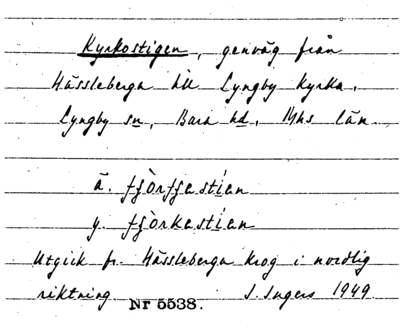 Kyrkostigen, genväg från
Hässleberga till Lyngby kyrka,
Lyngby sn, Bara hd, Mhs län
ä. fjòrfjestíen
y. fjòrkastíen
Utgick fr. Hässleberga krog i nordlig
riktning Nr 5538. S. Ingers 1949